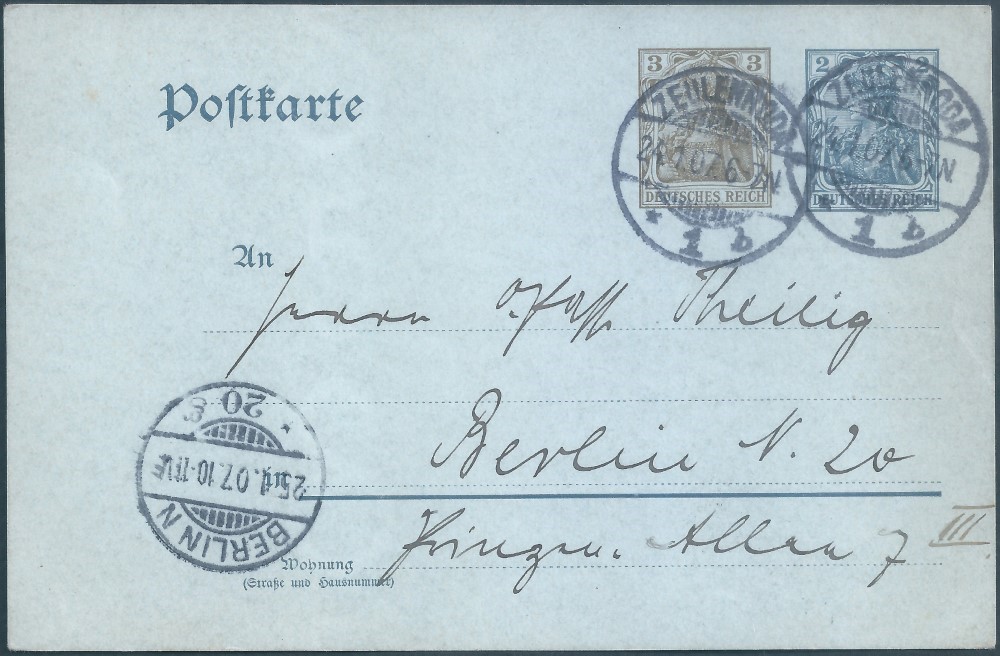 Postkarte
3 3
DEUTSCHES REICH
2 2
DEUTSCHES REICH
24.1.07.6-7N
* 1 b
24.1.07.6-7N
* 1 b
An
Herrn Theilig
Berlin N. 20
Prinzen-Allee 7 III.
BERLIN N
25.1.07.10-11V.
* 20
Wohnung
(Straße und Hausnummer)